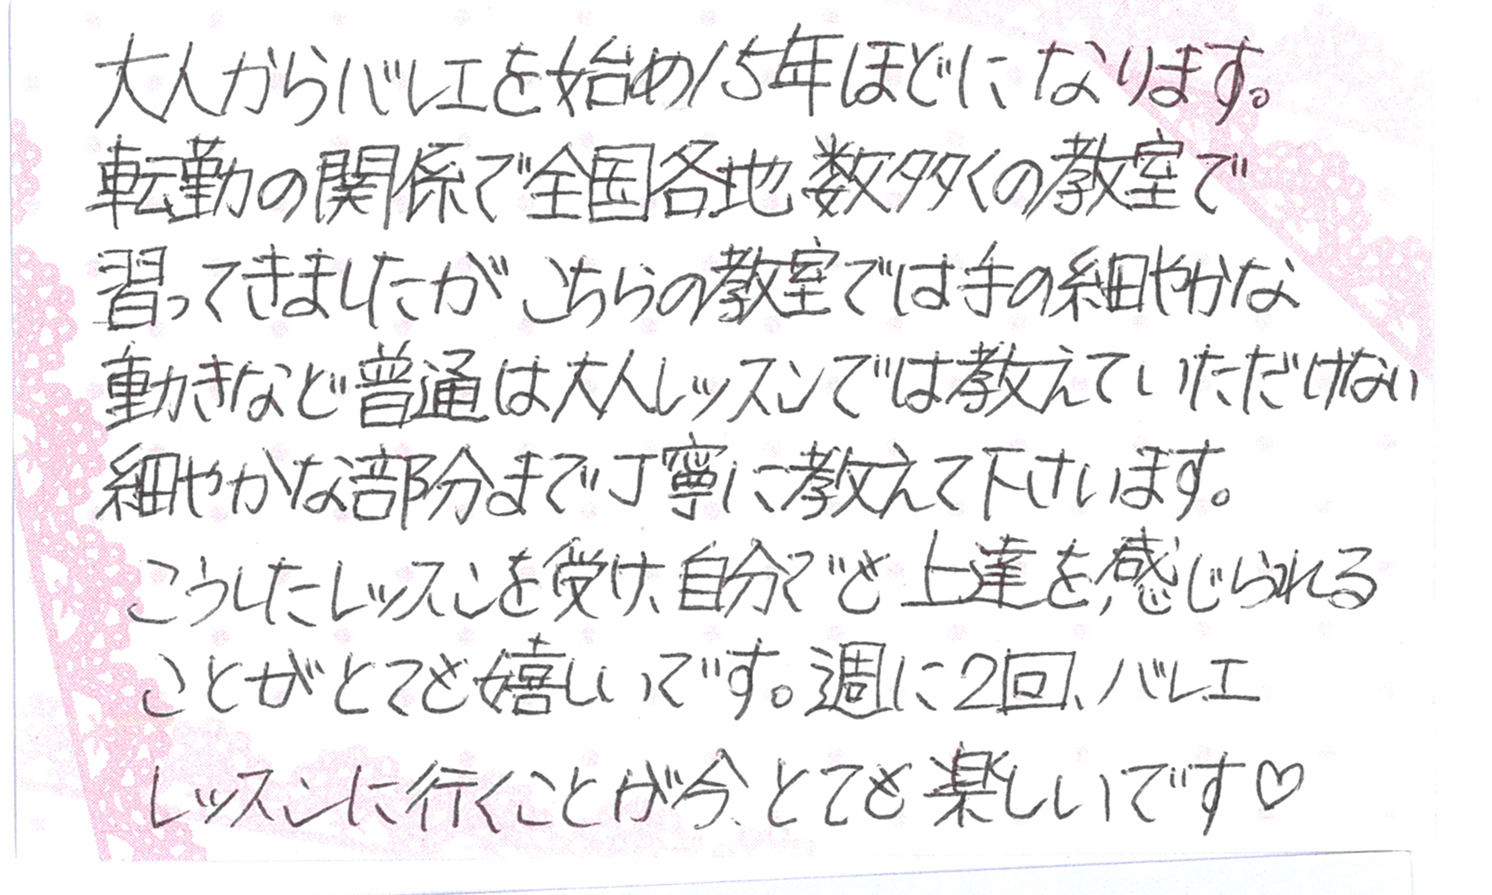 大人からバレエを始め15年ほどになります。
転勤の関係で全国各地、数多くの教室で
習ってきましたが こちらの教室では手の細やかな
動きなど普通は大人レッスンでは教えていただけない
細やかな部分まで丁寧に教えて下さいます。
こうしたレッスンを受け、自分でも上達を感じられる
ことがとても嬉しいです。週に2回、バレエ
レッスンに行くことが今、とても楽しいです♡